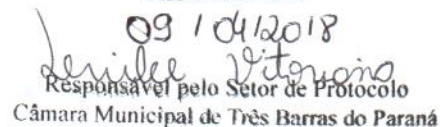 09 / 04 / 2018
Vitoriano
Responsável pelo Setor de Protocolo
Câmara Municipal de Três Barras do Paraná